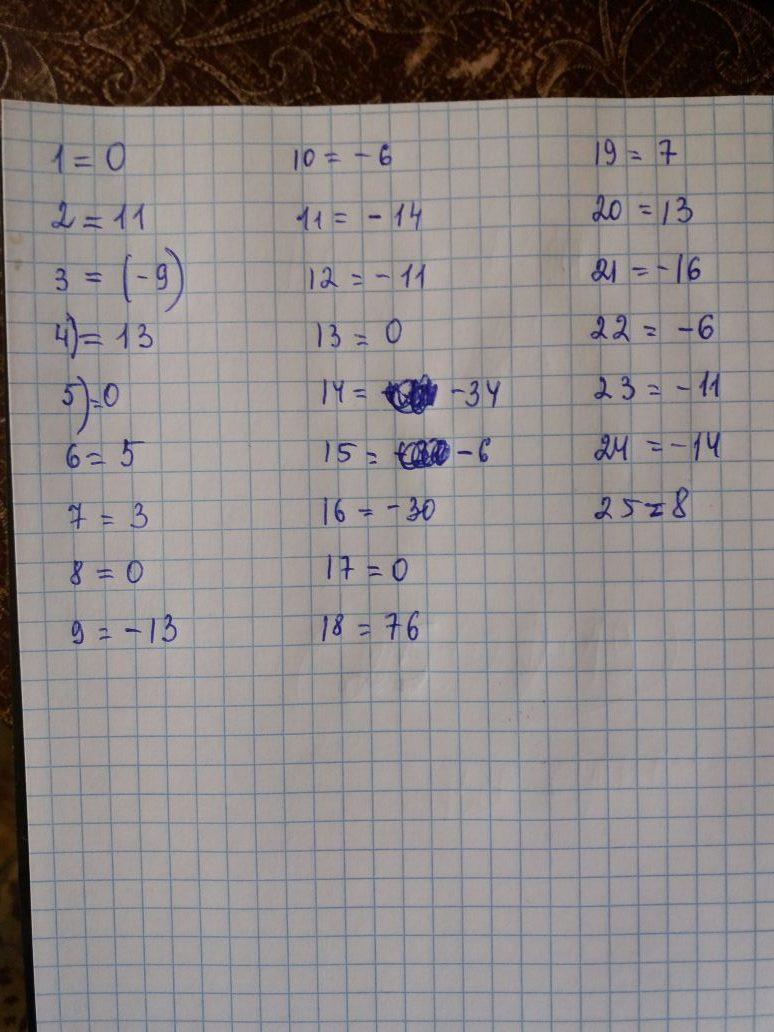 1 = 0
2 = 11
3 = (-9)
4) = 13
5) = 0
6 = 5
7 = 3
8 = 0
9 = -13
10 = -6
11 = -14
12 = -11
13 = 0
14 = -34
15 = -6
16 = -30
17 = 0
18 = 76
19 = 7
20 = 13
21 = -16
22 = -6
23 = -11
24 = -14
25 = 8